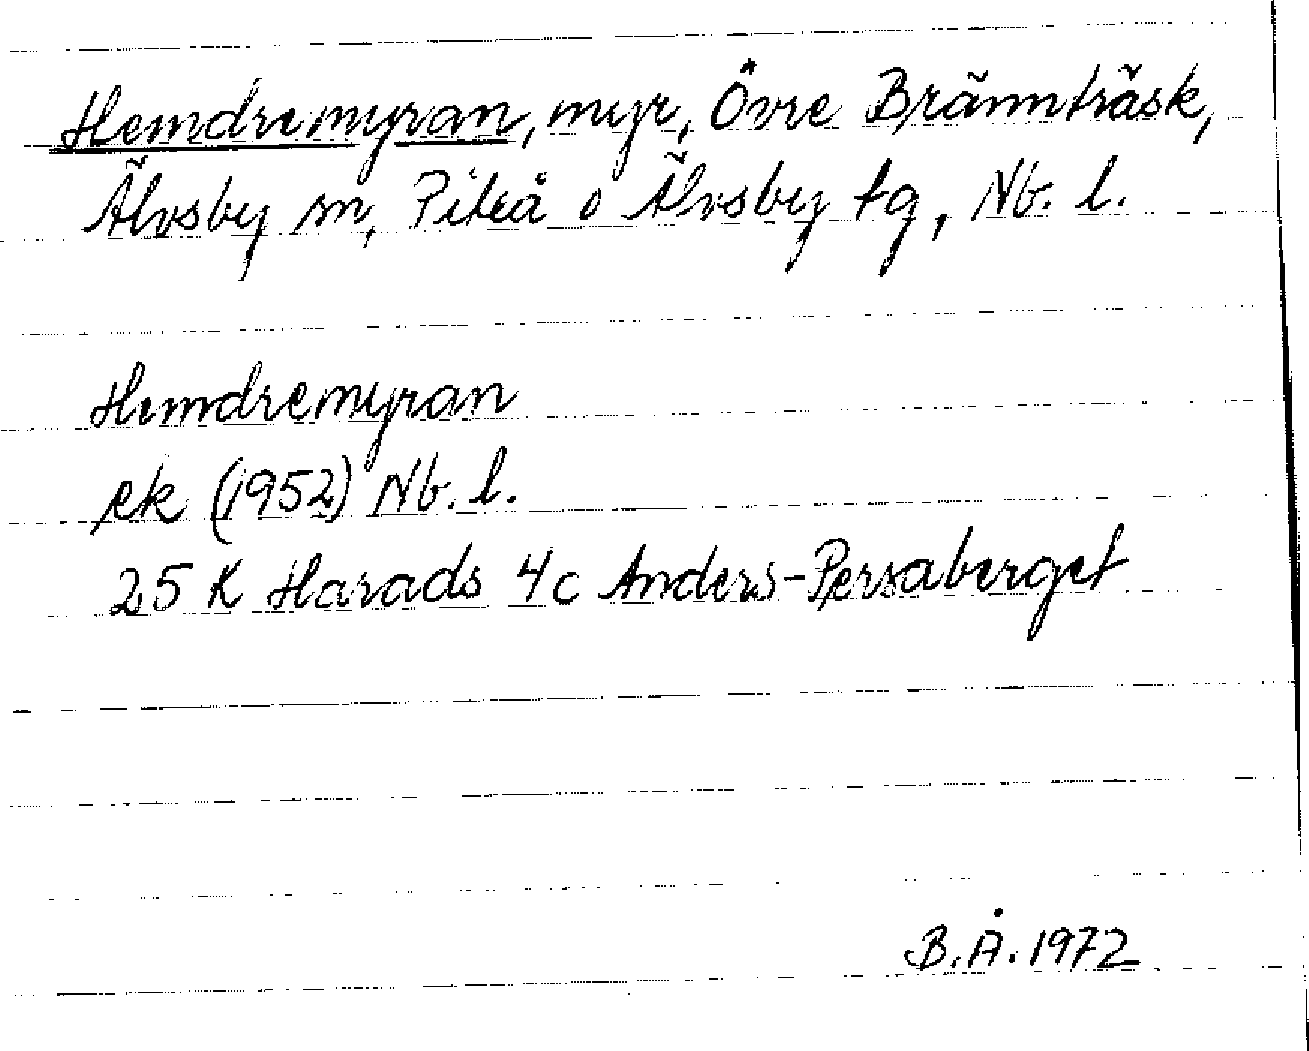 Hemdremyran, myr, Övre Brännträsk,
Älvsby sn, Piteå o Älvsby tg, Nb. l.
Hundremyran
ek (1952) Nb. l.
25 K Harads 4c Anders-Persaberget
B.Å. 1972